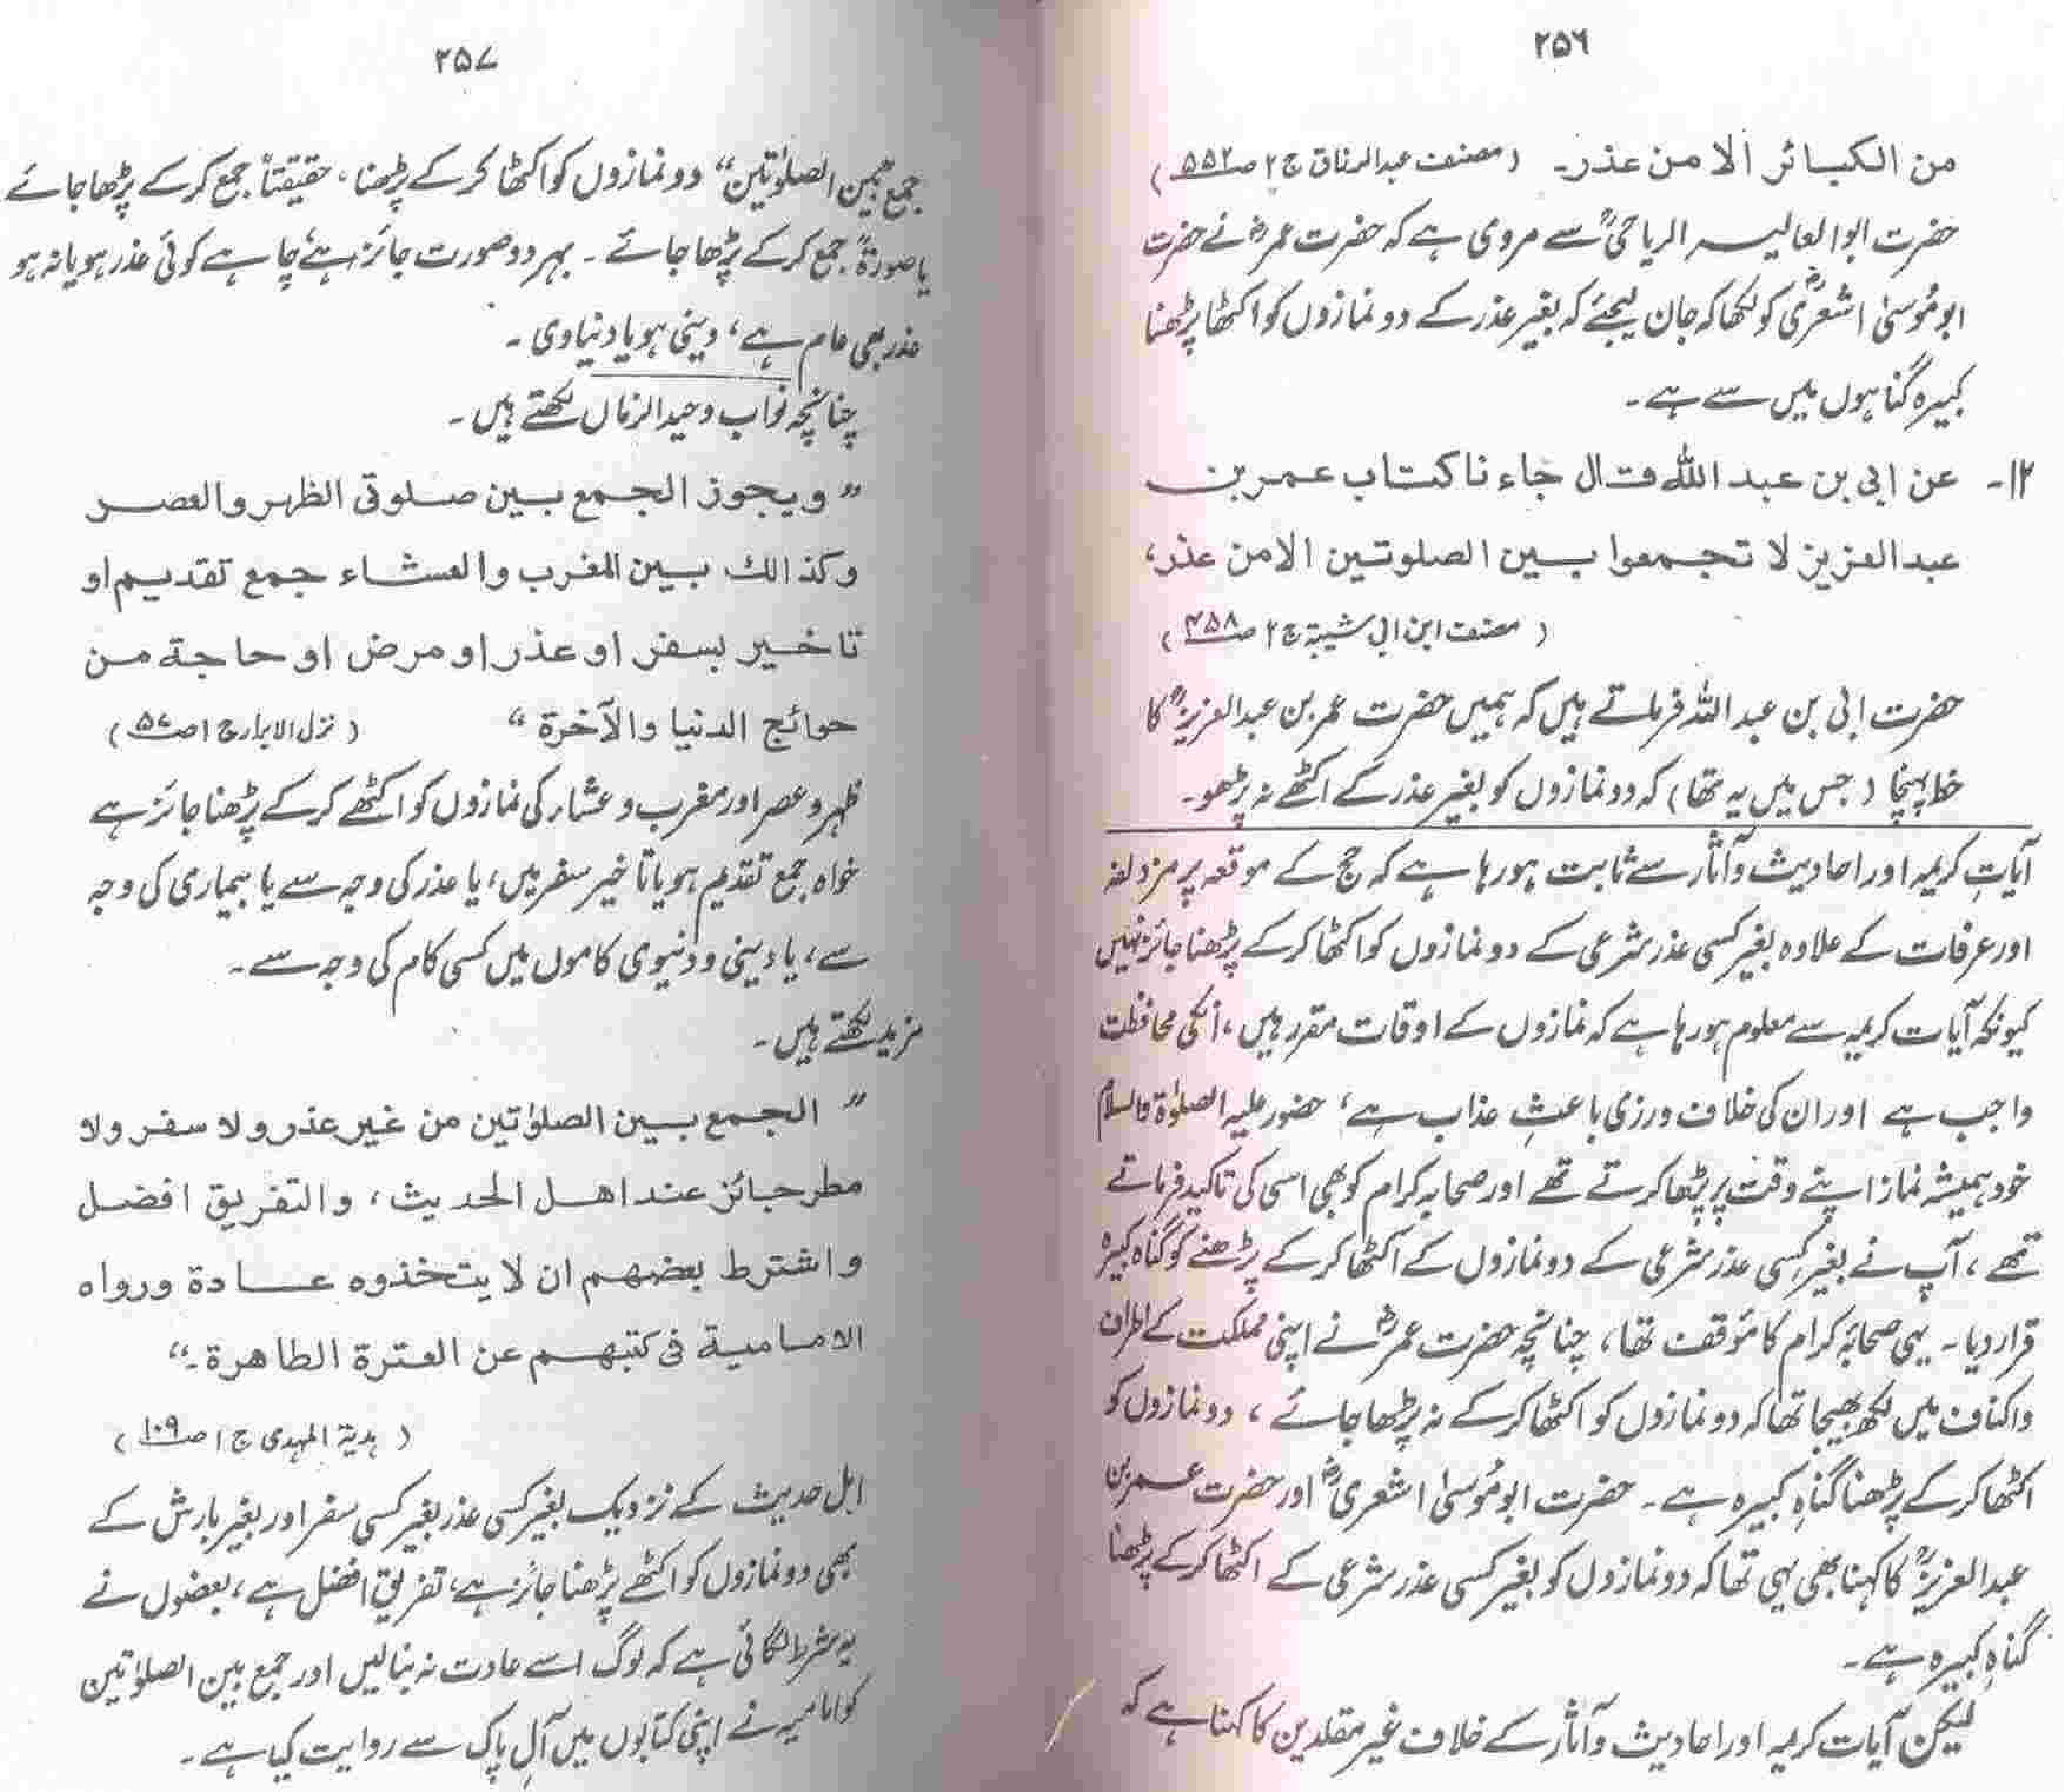 ۲۵۶
من الکبائر الا من عذر۔ (مصنف عبدالرزاق ج۲ ص۵۵۲)
حضرت ابوالعالیہ الریاحیؒ سے مروی ہے کہ حضرت عمرؓ نے حضرت
ابو مُوسیٰ اشعریؓ کو لکھا کہ جان لیجئے کہ بغیر عذر کے دو نمازوں کو اکٹھا پڑھنا
کبیرہ گناہوں میں سے ہے۔
۱۲۔ عن ابی بن عبد اللہ قال جاء نا کتاب عمر بن
عبد العزیز لا تجمعوا بین الصلوتین الا من عذر،
(مصنف ابن ابی شیبۃ ج۲ ص۴۵۸)
حضرت ابی بن عبد اللہ فرماتے ہیں کہ ہمیں حضرت عمر بن عبدالعزیزؒ کا
خط پہنچا (جس میں یہ تھا) کہ دو نمازوں کو بغیر عذر کے اکٹھے نہ پڑھو۔
آیاتِ کریمہ اور احادیث و آثار سے ثابت ہو رہا ہے کہ حج کے موقعہ پر مزدلفہ
اور عرفات کے علاوہ بغیر کسی عذر شرعی کے دو نمازوں کو اکٹھا کرکے پڑھنا جائز نہیں
کیونکہ آیات کریمہ سے معلوم ہو رہا ہے کہ نمازوں کے اوقات مقرر ہیں، اُنکی محافظت
واجب ہے اور ان کی خلاف ورزی باعثِ عذاب ہے، حضور علیہ الصلوٰۃ والسلام
خود ہمیشہ نماز اپنے وقت پر پڑھا کرتے تھے اور صحابہ کرام کو بھی اسی کی تاکید فرماتے
تھے، آپ نے بغیر کسی عذر شرعی کے دو نمازوں کے اکٹھا کرکے پڑھنے کو گناہ کبیرہ
قرار دیا۔ یہی صحابہ کرام کا مؤقف تھا، چنانچہ حضرت عمرؓ نے اپنی مملکت کے اطراف
و اکناف میں لکھ بھیجا تھا کہ دو نمازوں کو اکٹھا کرکے نہ پڑھا جائے، دو نمازوں کو
اکٹھا کرکے پڑھنا گناہِ کبیرہ ہے۔ حضرت ابو مُوسیٰ اشعریؓ اور حضرت عمر بن
عبدالعزیزؒ کا کہنا بھی یہی تھا کہ دو نمازوں کو بغیر کسی عذر شرعی کے اکٹھا کرکے پڑھنا
گناہِ کبیرہ ہے۔
لیکن آیات کریمہ اور احادیث و آثار کے خلاف غیر مقلدین کا کہنا ہے کہ
۲۵۷
جمع بین الصلوٰتین“ دو نمازوں کو اکٹھا کرکے پڑھنا، حقیقتاً جمع کرکے پڑھا جائے
یا صورۃً جمع کرکے پڑھا جائے۔ بہر دو صورت جائز ہے، چاہے کوئی عذر ہو یا نہ ہو
عذر بھی عام ہے، دینی ہو یا دنیاوی۔
چنانچہ نواب وحید الزماں لکھتے ہیں۔
” ویجوز الجمع بین صلوتی الظہر والعصر
وکذالک بین المغرب والعشاء جمع تقدیم او
تاخیر بسفر او عذر او مرض او حاجة من
حوائج الدنیا والآخرة“ (نزل الابرار ج۱ ص۵۷)
ظہر و عصر اور مغرب و عشاء کی نمازوں کو اکٹھے کرکے پڑھنا جائز ہے
خواہ جمع تقدیم ہو یا تاخیر سفر میں، یا عذر کی وجہ سے یا بیماری کی وجہ
سے، یا دینی و دنیوی کاموں میں کسی کام کی وجہ سے۔
مزید لکھتے ہیں۔
” الجمع بین الصلوٰتین من غیر عذر ولا سفر ولا
مطر جائز عند اھل الحدیث، والتفریق افضل
واشترط بعضهم ان لا یتخذوہ عادة ورواہ
الامامیة فی کتبهم عن العترة الطاهرة۔“
(ہدیۃ المہدی ج۱ ص۱۰۹)
اہل حدیث کے نزدیک بغیر کسی عذر بغیر کسی سفر اور بغیر بارش کے
بھی دو نمازوں کو اکٹھے پڑھنا جائز ہے، تفریق افضل ہے، بعضوں نے
یہ شرط لگائی ہے کہ لوگ اسے عادت نہ بنا لیں اور جمع بین الصلوٰتین
کو امامیہ نے اپنی کتابوں میں آلِ پاک سے روایت کیا ہے۔